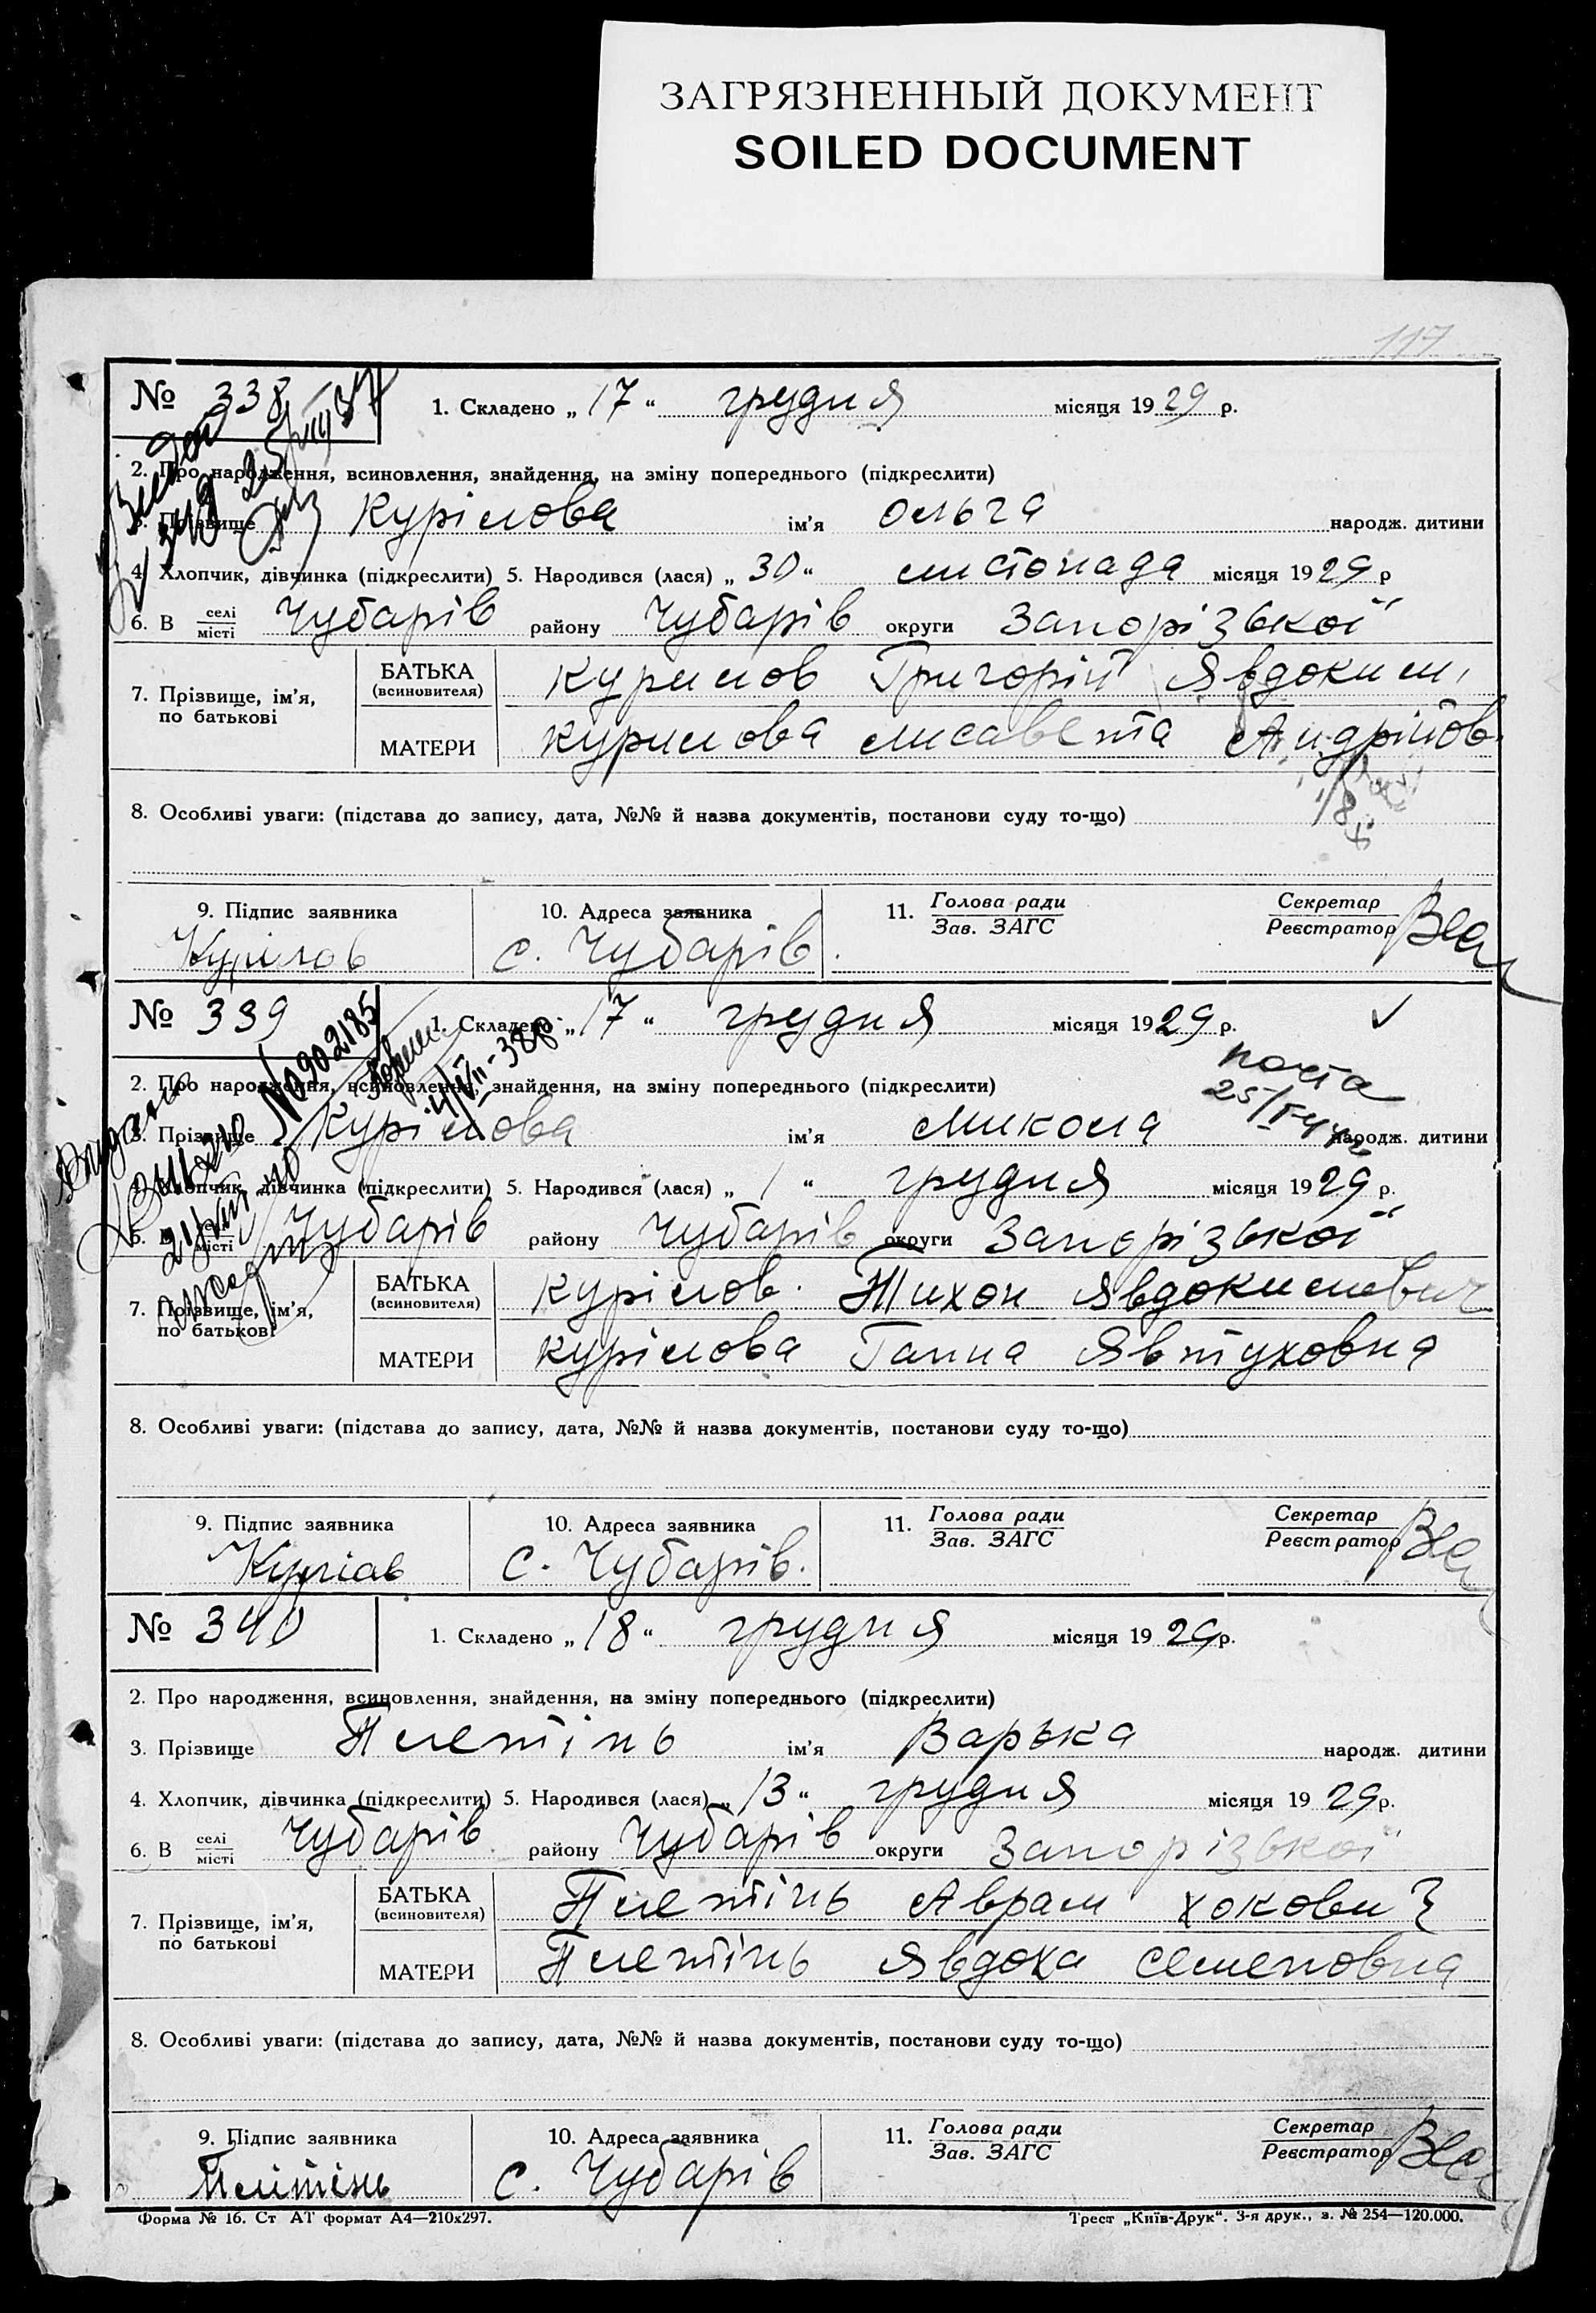 ЗАГРЯЗНЕННЫЙ ДОКУМЕНТ
SOILED DOCUMENT
117
№ 338
1. Складено „17“ грудня місяця 1929 р.
2. Про народження, всиновлення, знайдення, на зміну попереднього (підкреслити)
3. Прізвище Курілова ім'я Ольга народж. дитини
4. Хлопчик, дівчинка (підкреслити) 5. Народився (лася) „30“ листопада місяця 1929 р
6. В селі/місті Чубарів району Чубарів округи Запорізької
7. Прізвище, ім'я, по батькові
БАТЬКА (всиновителя) Курилов Григорій Явдоким,
МАТЕРИ Курилова Лисавета Андрійов.
8. Особливі уваги: (підстава до запису, дата, №№ й назва документів, постанови суду то-що)
9. Підпис заявника
Курілов
10. Адреса заявника
с. Чубарів.
11. Голова ради
Зав. ЗАГС
Секретар
Реєстратор
№ 339
1. Складено „17“ грудня місяця 1929 р.
№902185
2. Про народження, всиновлення, знайдення, на зміну попереднього (підкреслити)
3. Прізвище Курілова ім'я Микола народж. дитини
4. Хлопчик, дівчинка (підкреслити) 5. Народився (лася) „1“ грудня місяця 1929 р.
6. В селі/місті Чубарів району Чубарів округи Запорізької
7. Прізвище, ім'я, по батькові
БАТЬКА (всиновителя) Курілов. Тихон Явдокимович
МАТЕРИ Курілова Ганна Явтуховна
8. Особливі уваги: (підстава до запису, дата, №№ й назва документів, постанови суду то-що)
9. Підпис заявника
10. Адреса заявника
с. Чубарів.
11. Голова ради
Зав. ЗАГС
Секретар
Реєстратор
№ 340
1. Складено „18“ грудня місяця 1929 р.
2. Про народження, всиновлення, знайдення, на зміну попереднього (підкреслити)
3. Прізвище Плетінь ім'я Варька народж. дитини
4. Хлопчик, дівчинка (підкреслити) 5. Народився (лася) „13“ грудня місяця 1929 р.
6. В селі/місті Чубарів району Чубарів округи Запорізької
7. Прізвище, ім'я, по батькові
БАТЬКА (всиновителя) Плетінь Аврам
МАТЕРИ Плетінь Явдоха Семеновна
8. Особливі уваги: (підстава до запису, дата, №№ й назва документів, постанови суду то-що)
9. Підпис заявника
10. Адреса заявника
с. Чубарів
11. Голова ради
Зав. ЗАГС
Секретар
Реєстратор
Форма № 16. Ст АТ формат А4—210х297.
Трест „Київ-Друк“. 3-я друк., з. № 254—120.000.